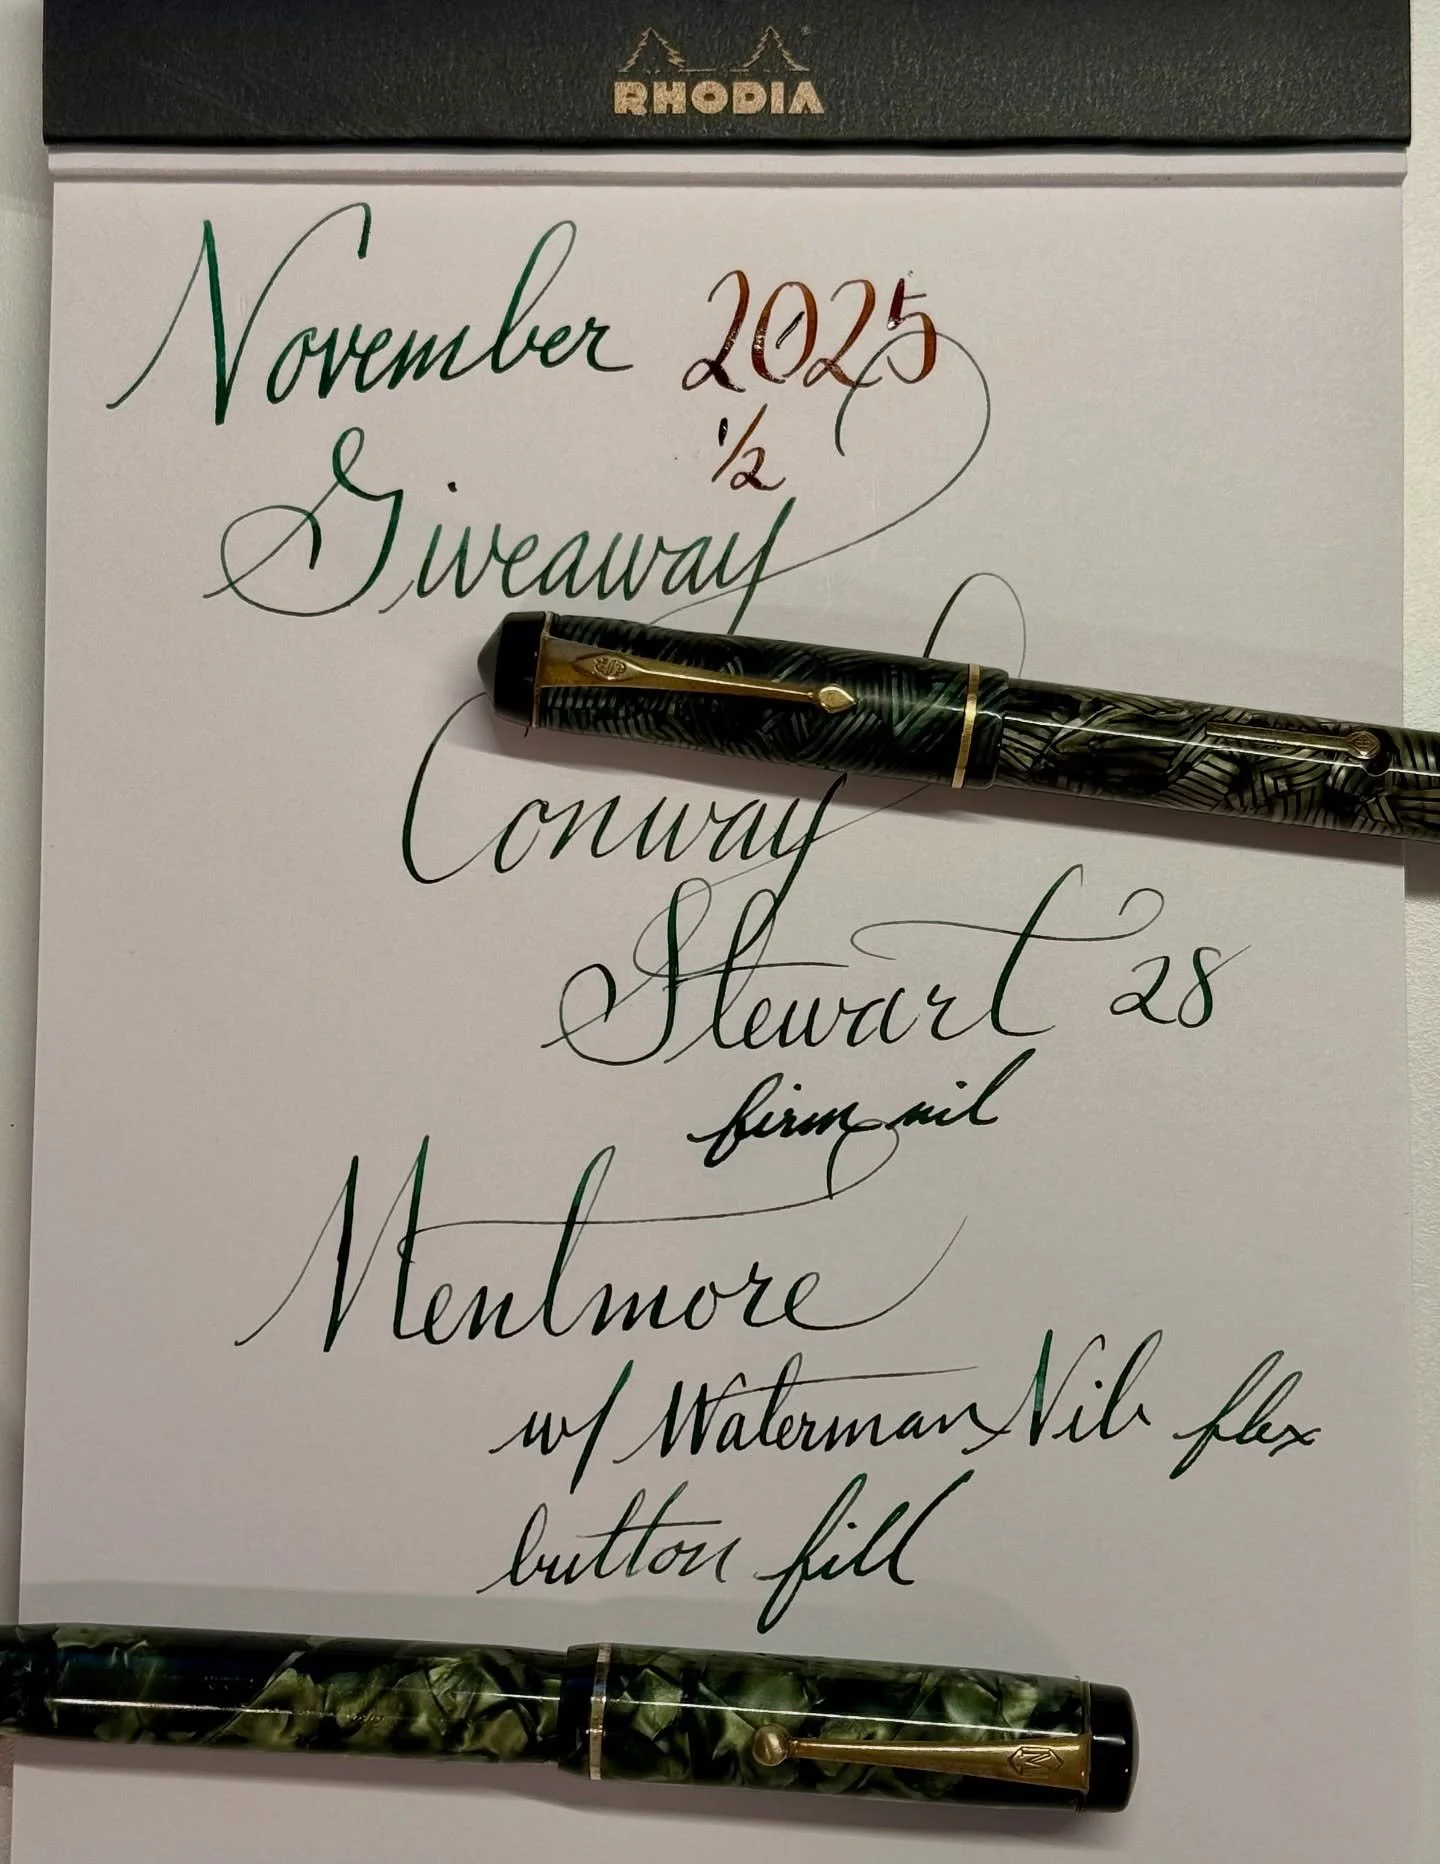 RHODIA
November 2025
1/2
Giveaway
Conway
Stewart 28
firm nib
Mentmore
w/ Waterman Nib flex
button fill